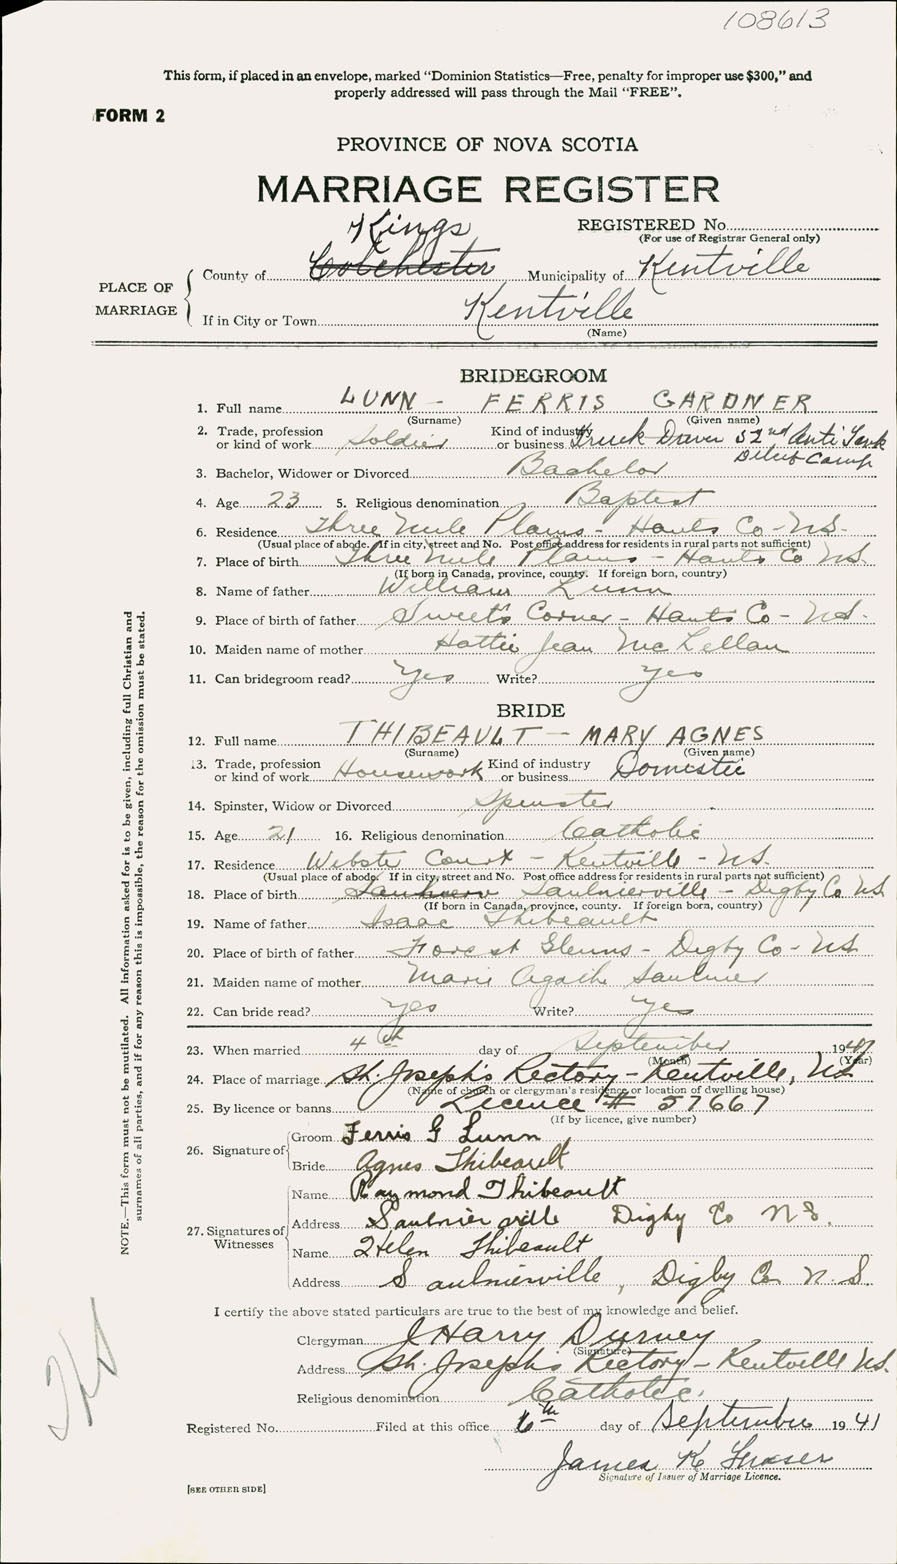 108613
This form, if placed in an envelope, marked "Dominion Statistics—Free, penalty for improper use $300," and
properly addressed will pass through the Mail "FREE".
FORM 2
PROVINCE OF NOVA SCOTIA
MARRIAGE REGISTER
REGISTERED No.
(For use of Registrar General only)
Kings
PLACE OF MARRIAGE
County of Colchester Municipality of Kentville
If in City or Town Kentville
(Name)
BRIDEGROOM
1. Full name LUNN - FERRIS GARDNER
(Surname) (Given name)
2. Trade, profession or kind of work Soldier Kind of industry or business Truck Driver 52nd Anti Tank
Camp
3. Bachelor, Widower or Divorced Bachelor
4. Age 23 5. Religious denomination Baptist
6. Residence Three Mile Plains - Hants Co - N.S.
(Usual place of abode. If in city, street and No. Post office address for residents in rural parts not sufficient)
7. Place of birth Three Mile Plains - Hants Co N.S.
(If born in Canada, province, county. If foreign born, country)
8. Name of father William Lunn
9. Place of birth of father Sweet's Corner - Hants Co - N.S.
10. Maiden name of mother Hattie Jean McLellan
11. Can bridegroom read? Yes Write? Yes
BRIDE
12. Full name THIBEAULT - MARY AGNES
(Surname) (Given name)
13. Trade, profession or kind of work Housework Kind of industry or business Domestic
14. Spinster, Widow or Divorced Spinster
15. Age 21 16. Religious denomination Catholic
17. Residence Webster Court - Kentville - N.S.
(Usual place of abode. If in city, street and No. Post office address for residents in rural parts not sufficient)
18. Place of birth Saulnierville - Digby Co N.S
(If born in Canada, province, county. If foreign born, country)
19. Name of father Isaac Thibeault
20. Place of birth of father Forest Glenns - Digby Co - N.S
21. Maiden name of mother Marie Agath Saulnier
22. Can bride read? Yes Write? Yes
23. When married 4th day of September 1941
(Month) (Year)
24. Place of marriage St. Joseph's Rectory - Kentville, N.S
(Name of church or clergyman's residence or location of dwelling house)
25. By licence or banns Licence # 57667
(If by licence, give number)
26. Signature of
Groom Ferris G Lunn
Bride Agnes Thibeault
27. Signatures of Witnesses
Name Raymond Thibeault
Address Saulnierville Digby Co N.S.
Name Helen Thibeault
Address Saulnierville, Digby Co. N.S.
I certify the above stated particulars are true to the best of my knowledge and belief.
Clergyman J Harry Durney
(Signature)
Address St. Joseph's Rectory - Kentville N.S.
Religious denomination Catholic.
Registered No. Filed at this office 6th day of September 1941
James K Fraser
Signature of Issuer of Marriage Licence.
[SEE OTHER SIDE]
NOTE.—This form must not be mutilated. All information asked for is to be given, including full Christian and
surnames of all parties, and if for any reason this is impossible, the reason for the omission must be stated.